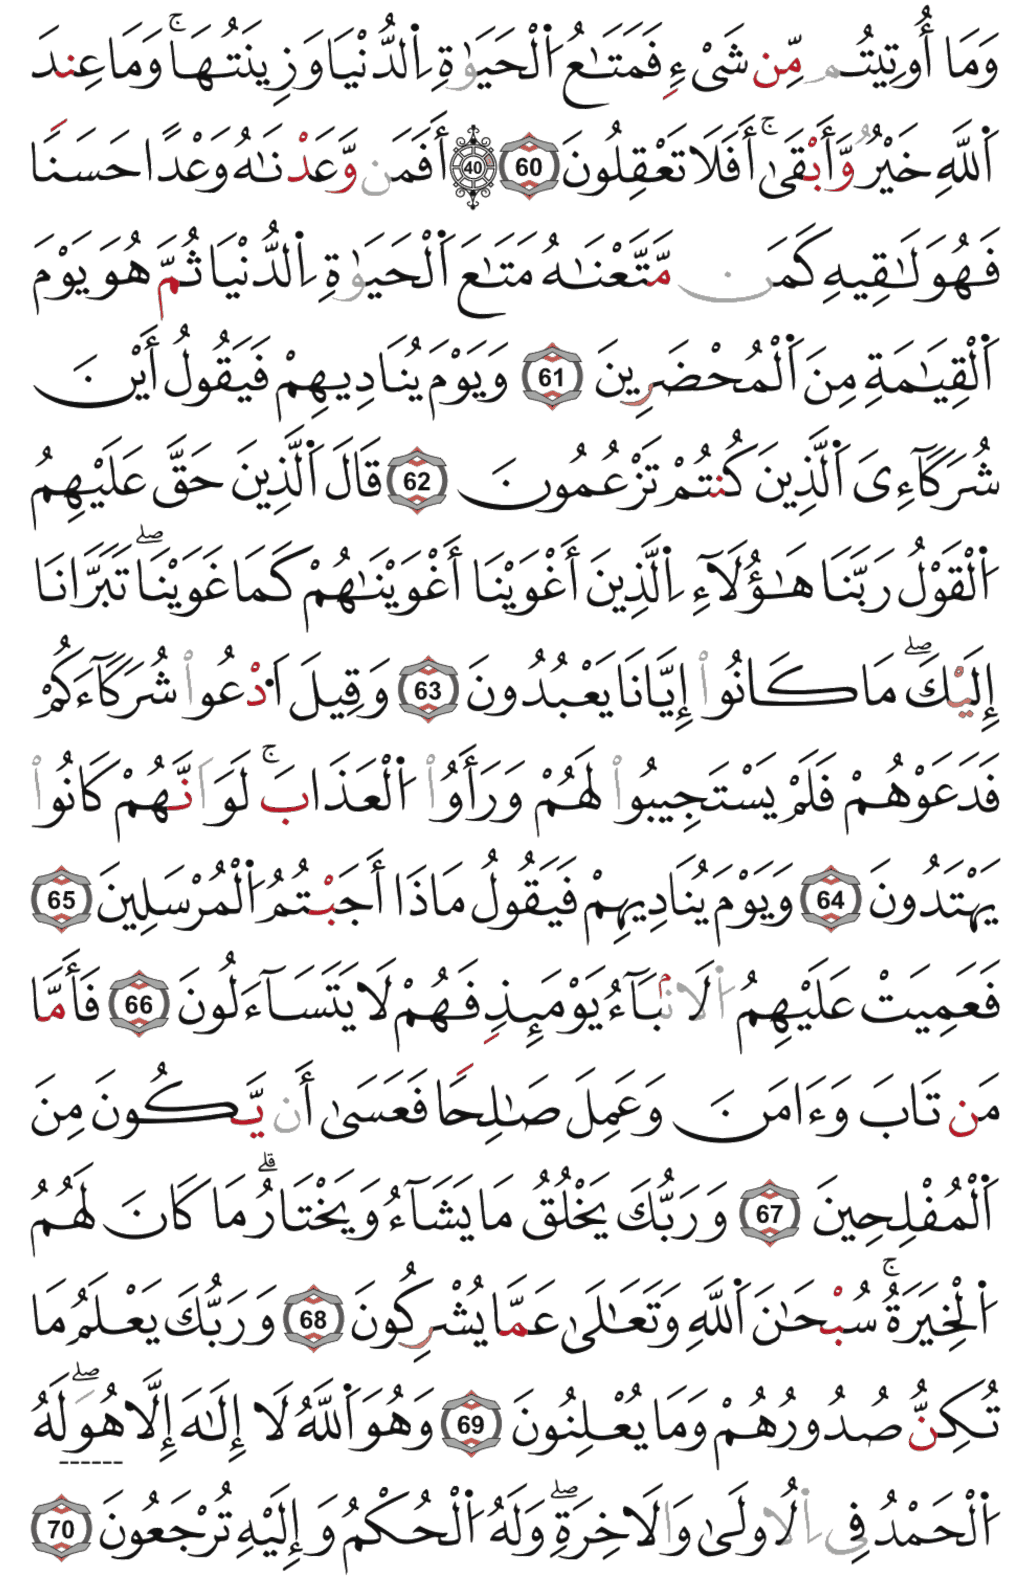 وَمَا أُوتِيتُم مِّن شَىْءٍ فَمَتَـٰعُ اُ۬لْحَيَوٰةِ اِ۬لدُّنْيَا وَزِينَتُهَاۚ وَمَا عِندَ
اَ۬للَّهِ خَيْرٌ وَّأَبْقَىٰۚ أَفَلَا تَعْقِلُونَ 60 40 أَفَمَن وَّعَدْنَـٰهُ وَعْدًا حَسَنًا
فَهُوَ لَـٰقِيهِ كَمَن مَّتَّعْنَـٰهُ مَتَـٰعَ اَ۬لْحَيَوٰةِ اِ۬لدُّنْيَا ثُمَّ هُوَ يَوْمَ
اَ۬لْقِيَـٰمَةِ مِنَ اَ۬لْمُحْضَرِينَ 61 وَيَوْمَ يُنَادِيهِمْ فَيَقُولُ أَيْنَ
شُرَكَآءِىَ اَ۬لَّذِينَ كُنتُمْ تَزْعُمُونَ 62 قَالَ اَ۬لَّذِينَ حَقَّ عَلَيْهِمُ
اُ۬لْقَوْلُ رَبَّنَا هَـٰٓؤُلَآءِ اِ۬لَّذِينَ أَغْوَيْنَا أَغْوَيْنَـٰهُمْ كَمَا غَوَيْنَاۖ تَبَرَّأْنَا
إِلَيْكَۖ مَا كَانُوا۟ إِيَّانَا يَعْبُدُونَ 63 وَقِيلَ اَ۟دْعُوا۟ شُرَكَآءَكُمْ
فَدَعَوْهُمْ فَلَمْ يَسْتَجِيبُوا۟ لَهُمْ وَرَأَوُا۟ اُ۬لْعَذَابَۚ لَوَ اَنَّهُمْ كَانُوا۟
يَهْتَدُونَ 64 وَيَوْمَ يُنَادِيهِمْ فَيَقُولُ مَاذَا أَجَبْتُمُ اُ۬لْمُرْسَلِينَ 65
فَعَمِيَتْ عَلَيْهِمُ اُ۬لَانۢبَآءُ يَوْمَئِذٍ فَهُمْ لَا يَتَسَآءَلُونَ 66 فَأَمَّا
مَن تَابَ وَءَامَنَ وَعَمِلَ صَـٰلِحًا فَعَسَىٰ أَن يَّكُونَ مِنَ
اَ۬لْمُفْلِحِينَ 67 وَرَبُّكَ يَخْلُقُ مَا يَشَآءُ وَيَخْتَارُۗ مَا كَانَ لَهُمُ
اُ۬لْخِيَرَةُۚ سُبْحَـٰنَ اَ۬للَّهِ وَتَعَـٰلَىٰ عَمَّا يُشْرِكُونَ 68 وَرَبُّكَ يَعْلَمُ مَا
تُكِنُّ صُدُورُهُمْ وَمَا يُعْلِنُونَ 69 وَهُوَ اَ۬للَّهُ لَا إِلَـٰهَ إِلَّا هُوَۖ لَهُ
اُ۬لْحَمْدُ فِى اِ۬لُاولَىٰ وَالَاخِرَةِۖ وَلَهُ اُ۬لْحُكْمُ وَإِلَيْهِ تُرْجَعُونَ 70